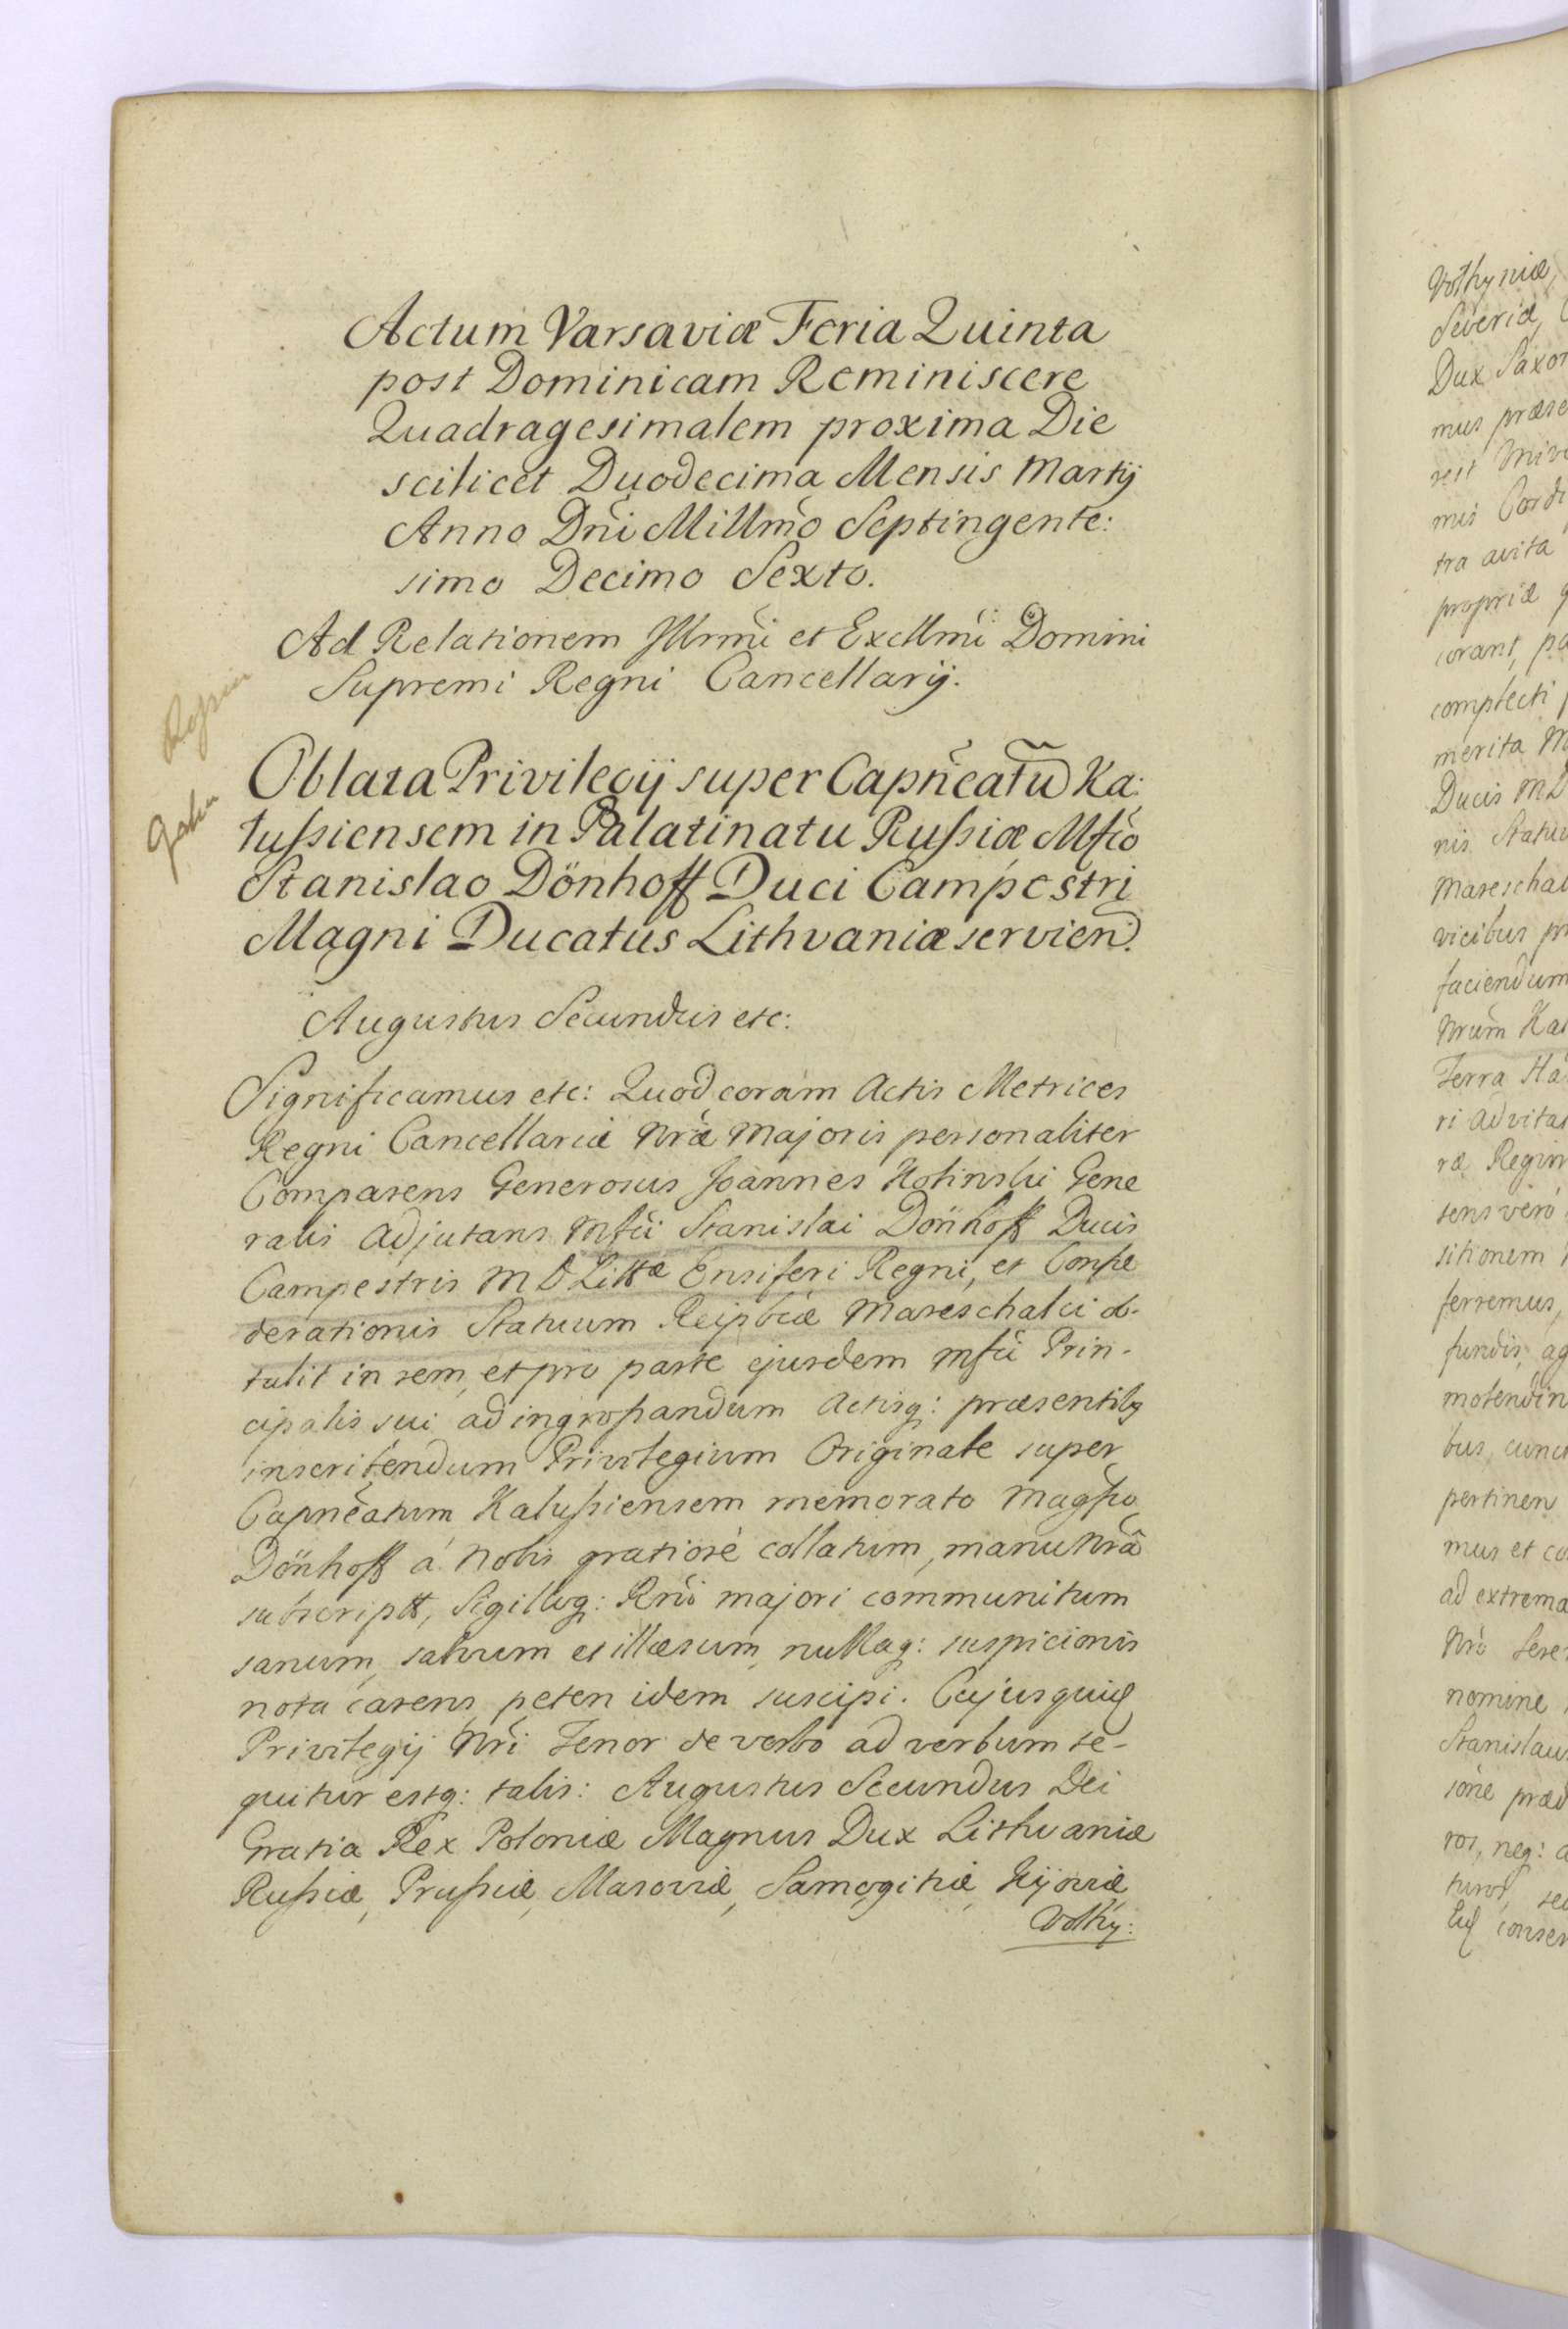 Actum Varsaviæ Feria Quinta
post Dominicam Reminiscere
Quadragesimalem proxima Die
scilicet Duodecima Mensis Martij
Anno Dn̄i Millm̄o Septingente:
simo Decimo Sexto.
Ad Relationem Jllrmī et Exc̄llmī Domini
Supremi Regni Cancellarij.
Oblata Privilegij super Capn̄eatū Ka:
lussiensem in Palatinatu Russiæ Mfīco
Stanislao Dönhoff Duci Campestri
Magni Ducatus Lithvaniæ servien:
Augustus Secundus etc:
Significamus etc: Quod coram Actis Metrices
Regni Cancellariæ Nrǣ Majoris personaliter
Comparens Generosus Joannes Holinski Gene
ralis Adjutans Mfci Stanislai Dönhoff Ducis
Campestris M D Littæ Ensiferi Regni, et Confæ
derationis Statuum Reipbcæ Mareschalci ob-
tulit in rem, et pro parte ejusdem Mfci Prin-
cipalis sui ad ingrossandum Actisq: præsentibq
inscribendum Privilegium Originale super
Capnēatum Kalussiensem memorato Magfco
Dönhoff á Nobis gratiosé collatum, manu Nrā
subscriptt, Sigilloq: Rnī majori communitum
sanum, salvum et illæsum, nullaq: suspicionis
nota carens, peten idem suscipi. Cujusquid
Privilegij Nrī Tenor de verbo ad verbum se-
quitur estq: talis: Augustus Secundus Dei
Gratia Rex Poloniæ Magnus Dux Lithvaniæ
Russiæ, Prussiæ, Masoviæ, Samogitiæ, Kijoviæ,
Volhy:
Volhyniæ,
Severiæ,
Dux Saxon
mus præse
mis Cordi
tra avita
propriæ
corant, pa
complecti
merita M
Ducis MD
nis Statuu
Mareschal
vicibus pr
faciendum
Nrūm Kal
Terra Ha
ri ad vitæ
ræ Regim
sens veró
sitionem
ferremus,
fundis, ag
molendin
bus, cunct
pertinen
mus et co
ad extrema
Nrō Sere
nomine
Stanislaus
sione præd
ros, neq: a
turos, se
conser